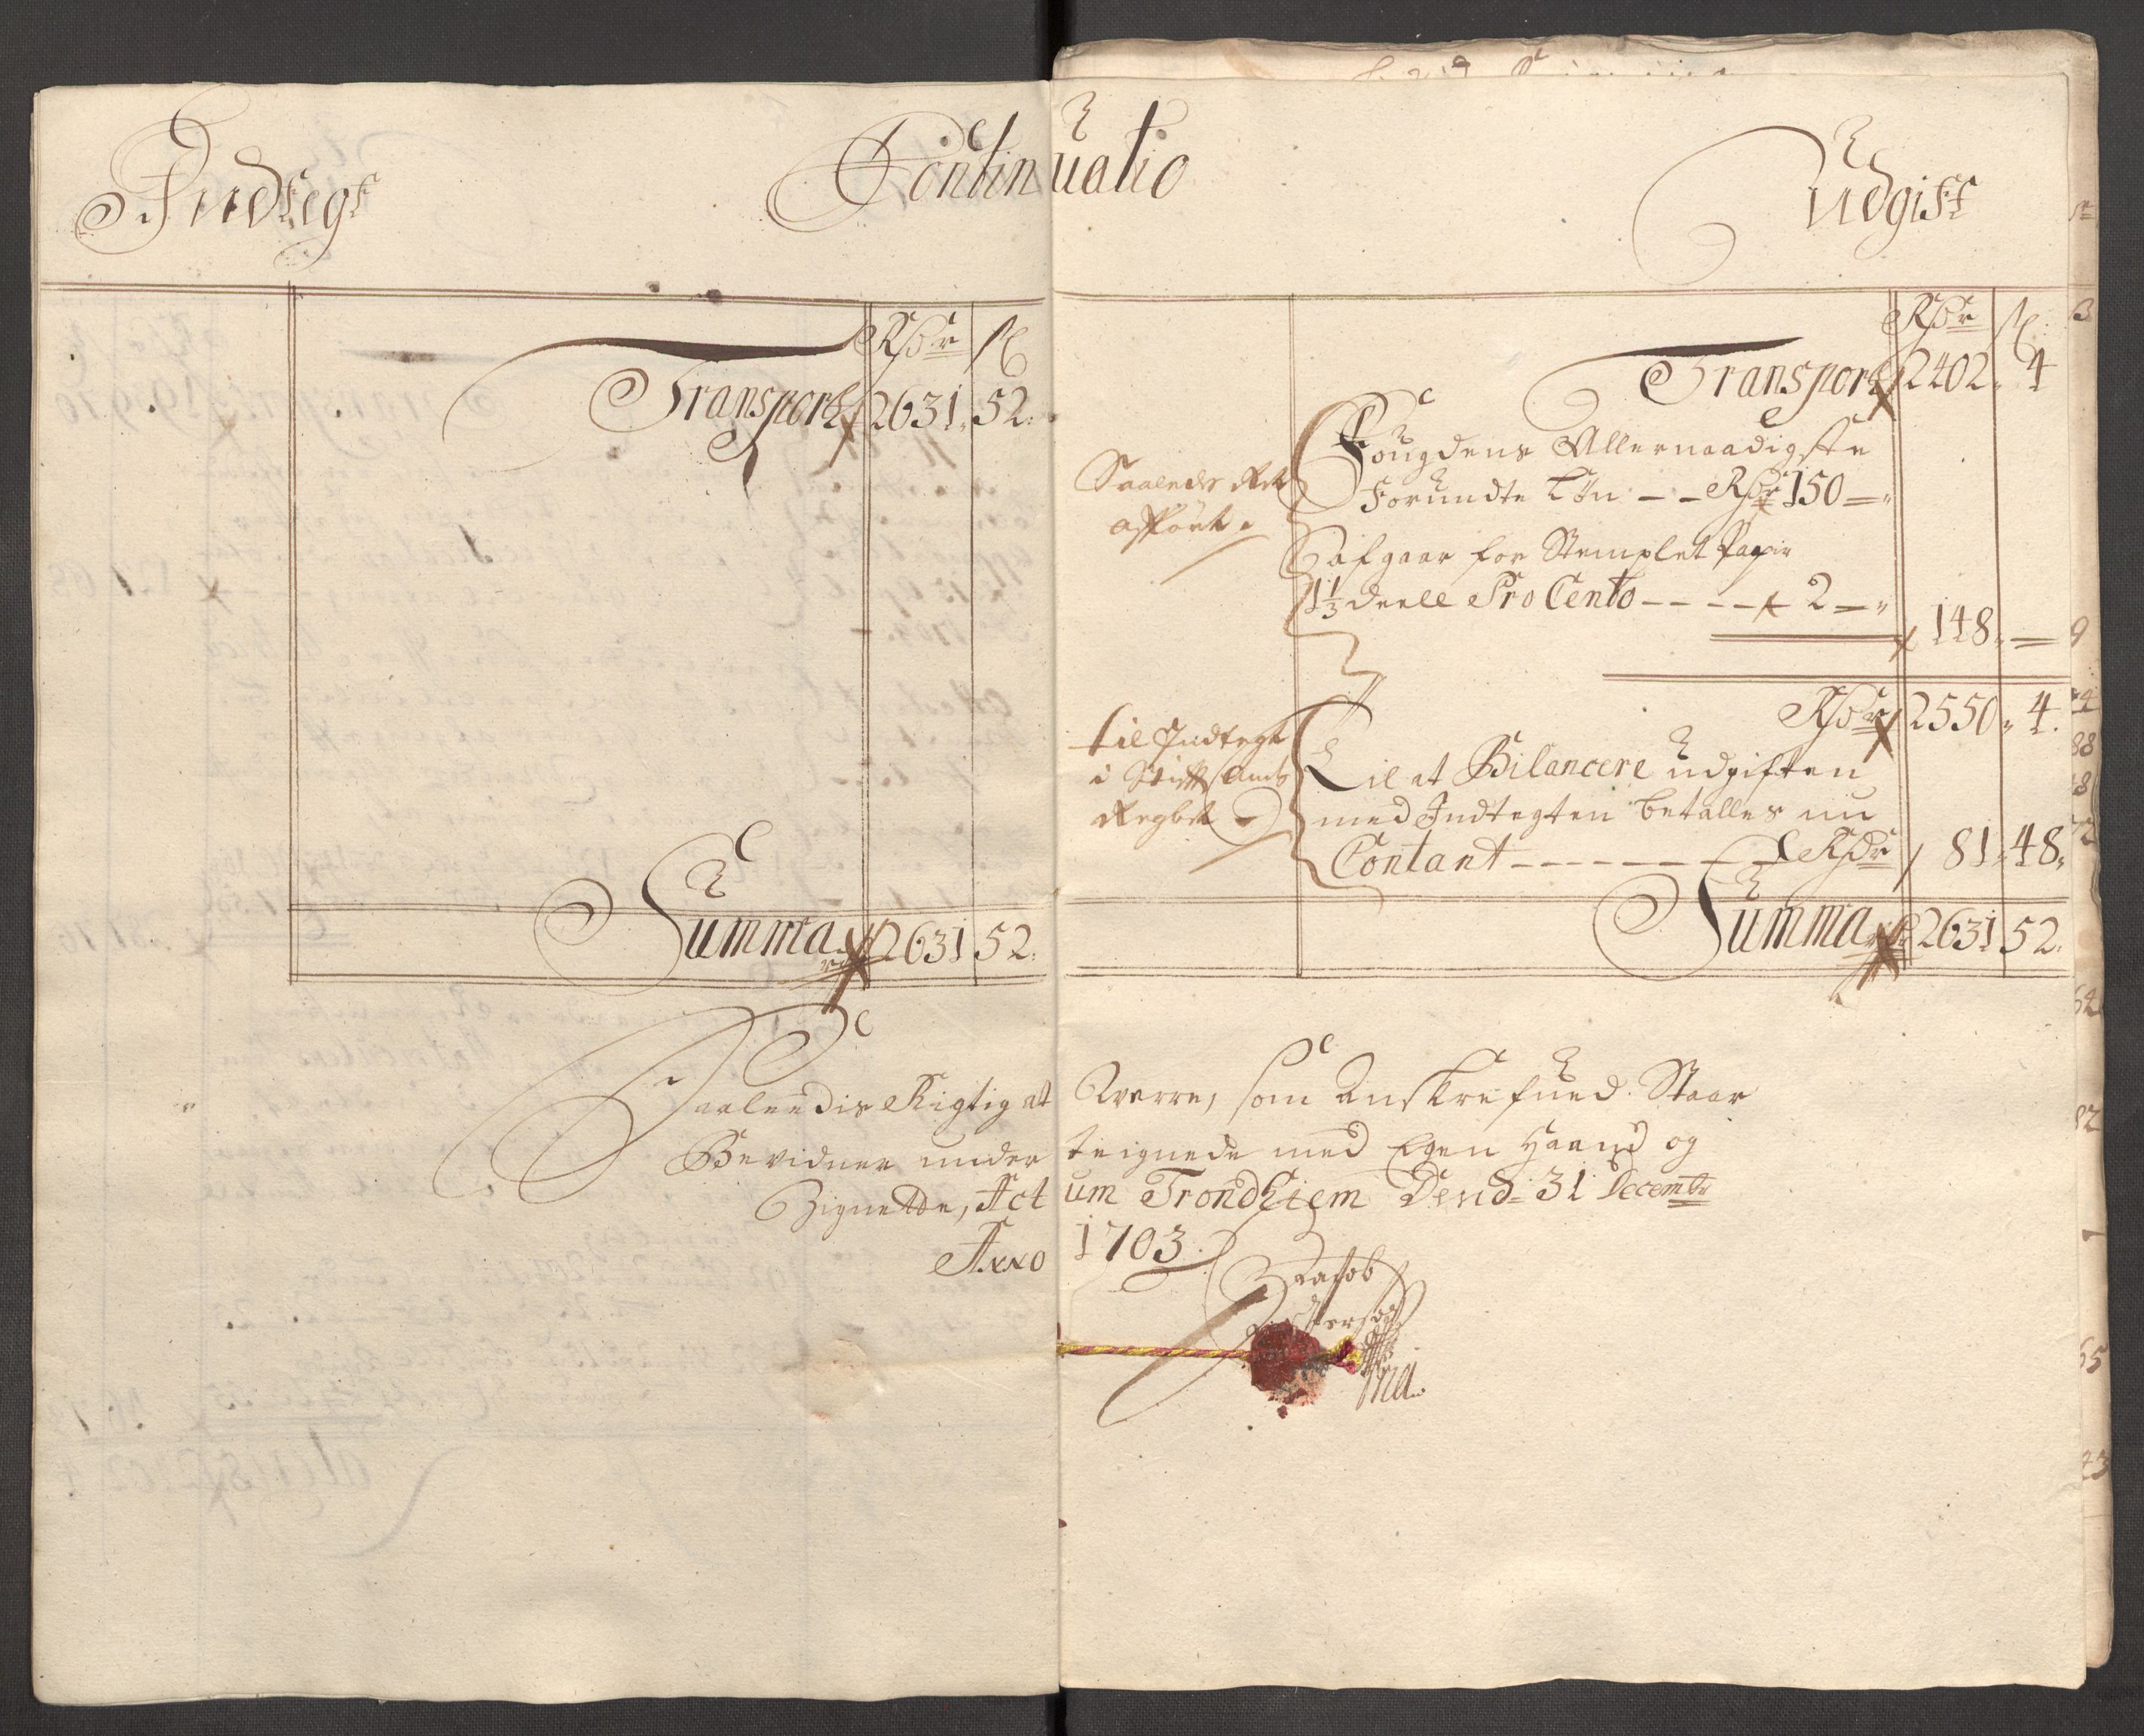 Indtegt
Continuatio
Udgift
Rdr ß
Transport 2631 52
Summa rdr 2631 52
Rdr ß
Transport 2402 4
Saaledes Ret
afført
Fougdens Allernaadigste
Forundte Løn - - Rdr 150 -
afgaar for Stemplet Papir
1 1/3 deell Pro Cento - - - - 2 -
148 -
Rdr 2550 4
til Indtegt
i Stifft Amts
Regbet
Til at Bilancere udgiften
med Indtegten betalles nu
Contant - - - - - - - Rdr 81 48
Summa rdr 2631 52
Saaleedis Rigtig at Werre, som Anskrefued Staar
Bevidner under teignede med Egen Haand og
Zignette, Actum Trondhiem Dend 31 Decembr
Anno 1703